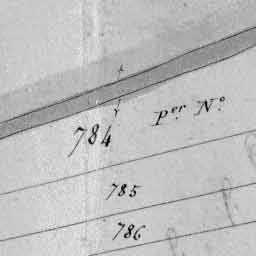 784 Per. No.
785
786